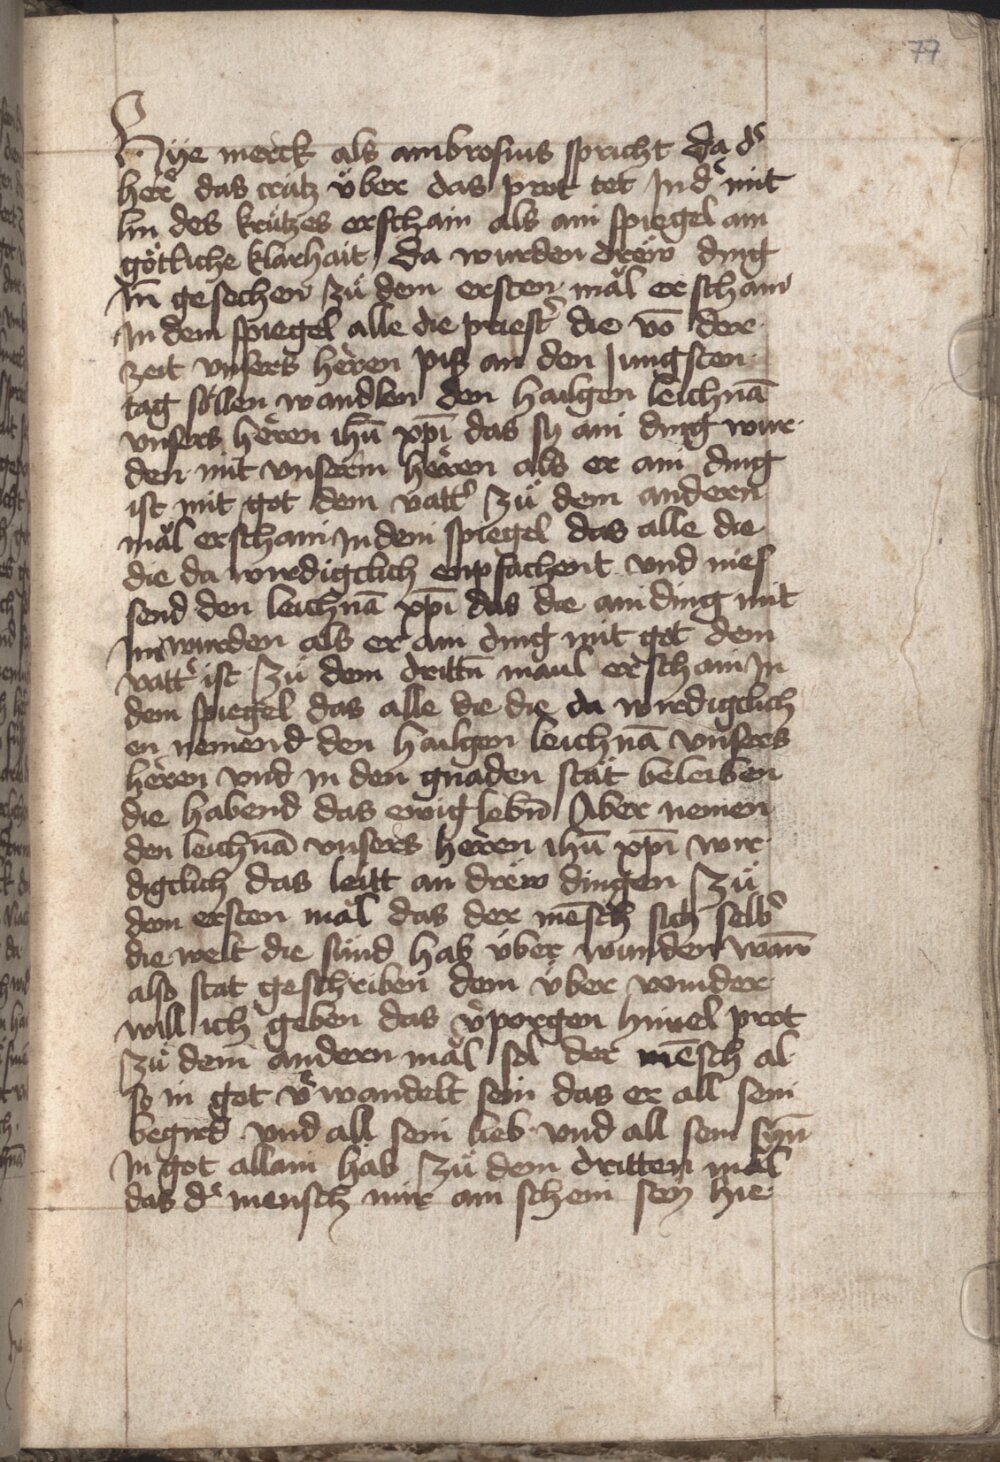 77
Hÿe merck als ambrosius spricht da dˢ
herˢ das crütz über das prot tet In dˢ mit
lin des krützes erschain als ain spiegel ain
götliche klarhait da wurden drew ding
Iñ gesechen zů dem ersten mäl erschain
In dem spiegel alle die priestˢ die vō der
zeit vnsers heren pis an den Jungsten
tag söllen wandlen den hailgen leichnā
vnsers heren ihū xpī das sy ain ding wur
den mit vnserm heren als er ain ding
ist mit got dem vattˢ zů dem andern
mäl erschain In dem spiegel das alle die
die da wirdigclich enpfachent vnd nies
send den leichnā xpī das die ain ding mit
Im wurden als er ain ding mit got dem
vattˢ ist zů dem drittñ maul erschain In
dem spiegel das alle die die da wirdigclich
en nemend den hailgen leichnā vnsers
heren vnd in den gnaden stät beleiben
die habend das ewig lebñ Aber nemen
den leichnā vnsers heren ihū xpī wir
digclich das leitt an drew dingen zů
dem ersten mäl das der mēsch sich selbˢ
die welt die sünd hab über wunden wañ
also stat geschriben dem über winder
will ich geben das vˢporgen himel prot
zů dem andern mäl sol der mēsch al
so in got vˢwandelt sein das er all sein
begird vnd all sein lieb vnd all sein syñ
In got allain hab zů dem dritten mäl
das dˢ mensch nur ain schein sey hie